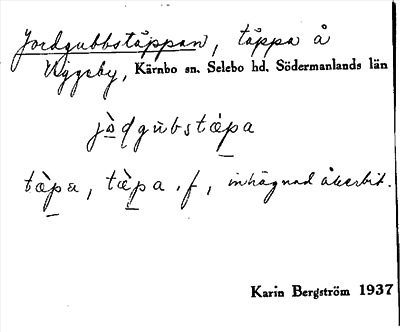 Jordgubbstäppan, täppa å
Nyggeby, Kärnbo sn. Selebo hd. Södermanlands län
jòɖgùbstæ̀pa
tæ̀pa, tæ̀pa . f, inhägnad åkerbit.
Karin Bergström 1937